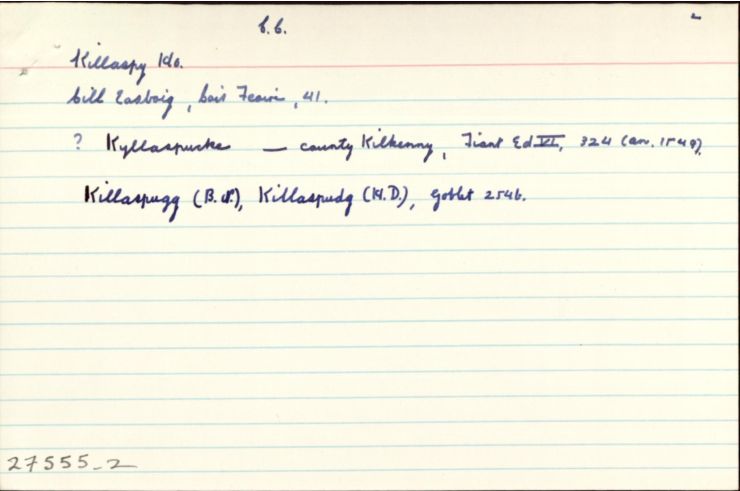 C.C.
Killaspy Ido.
Cill Easboig, Cois Feoire, 41.
? Kyllaspucke — county Kilkenny, Fiant Ed VI, 324 (an. 1549).
Killaspugg (B.S.), Killaspudg (H.D.), Goblet 254b.
27555-2